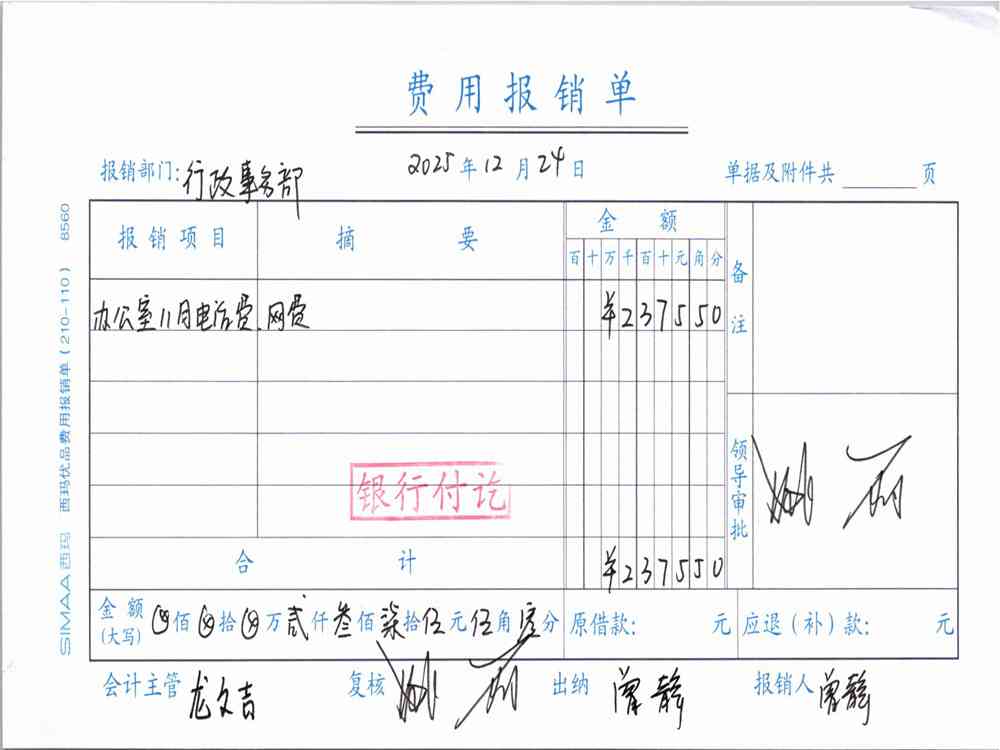 费用报销单
报销部门:行政事务部 2025年12月24日 单据及附件共 页
报销项目 摘要 金额 备注
百十万千百十元角分
办公室11月电话费、网费 ¥237550
银行付讫
领导审批 姚丽
合计 ¥237550
金额(大写) 佰 拾 万贰仟叁佰柒拾伍元伍角零分 原借款: 元 应退(补)款: 元
会计主管 龙文吉 复核 姚丽 出纳 曾静 报销人 曾静
SIMAA西玛 西玛优品费用报销单(210-110) 8560